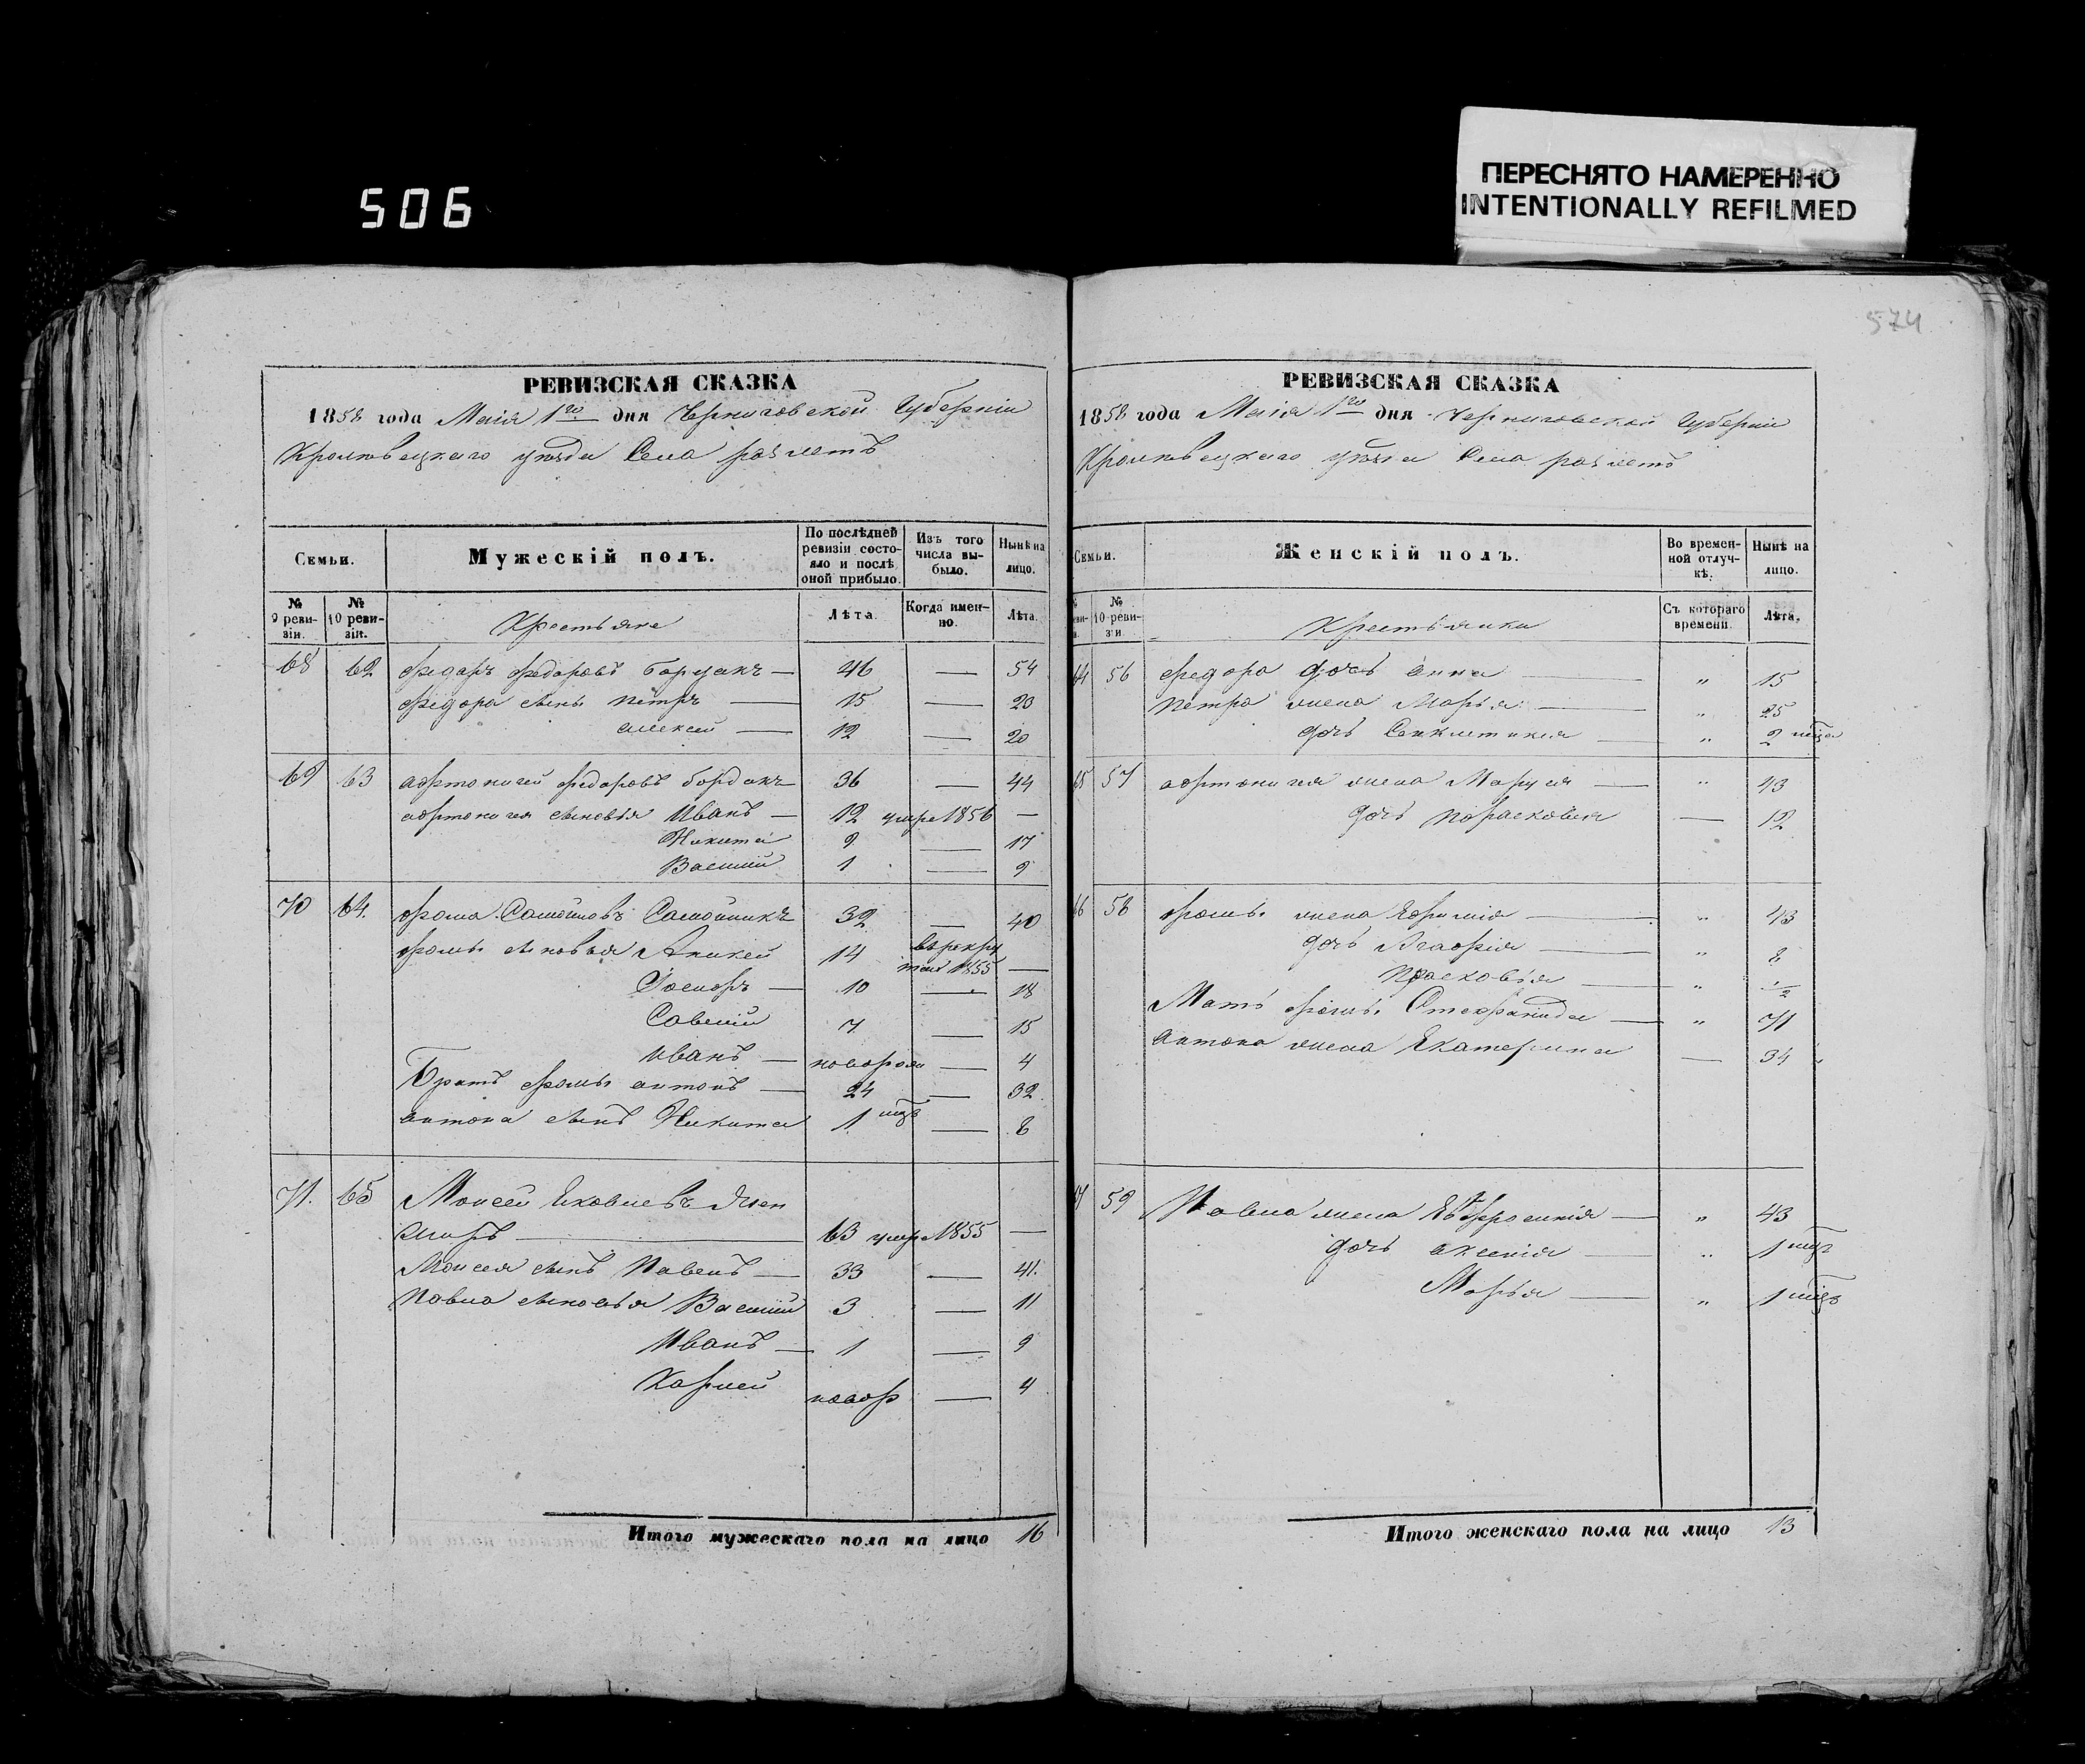 506
ПЕРЕСНЯТО НАМЕРЕННО
INTENTIONALLY REFILMED
574
РЕВИЗСКАЯ СКАЗКА
1858 года Маія 1го дня Черниговской Губерніи
Кролевецкаго уезда Села
Семьи.
Мужескій полъ.
По послѣдней ревизіи состояло и послѣ оной прибыло.
Изъ того числа выбыло.
Нынѣ на лицо.
№ 9 ревизіи.
№ 10 ревизіи.
Крестьяне
Лѣта.
Когда именно.
Лѣта.
68 62 Федоръ Федоровъ — 46 — 54
Федора сынъ Петръ — 15 — 23
алексей — 12 — 20
69 63 Федоровъ бордакъ 36 — 44
сыновья Иванъ — 12 умре 1856 —
Никита 9 — 17
Василій 1 — 9
70 64. Фома Самойловъ Самойликъ 32 — 40
Фомы сыновья Аникей 14 въ рекруты 1855 —
Іосифъ — 10 — 18
Савелій 7 — 15
Иванъ — новорож — 4
Братъ Фомы антонъ — 24 — 32
антона сынъ Никита 1 — 8
71. 65 Моисей Яковлевъ
— 63 умре 1855 —
Моисея сынъ Павелъ — 33 — 41.
Павла сыновья Василій 3 — 11
Иванъ — 1 — 9
Карпей новор — 4
Итого мужескаго пола на лицо 16
РЕВИЗСКАЯ СКАЗКА
1858 года Маія 1го дня Черниговской Губерніи
Кролевецкаго уезда Села
Семьи.
Женскій полъ.
Во временной отлучкѣ.
Нынѣ на лицо.
№ 10 ревизи
Крестьянки
Съ котораго времени.
Лѣта.
64 56 Федора дочь анна — „ 15
Петра жена Марья — „ 25
дочь — „ 2
65 57 жена — „ 43
дочь Парасковія — 12
66 58 Фомы жена Ефимія — „ 43
дочь Агафія — „ 8
Прасковья — „ 1/2
Мать Фомы — „ 71
антона жена Екатерина — 34
67 59 Павла жена Евфросинія — „ 43
дочь аксенія — „ 1
Марья — „ 1
Итого женскаго пола на лицо 13